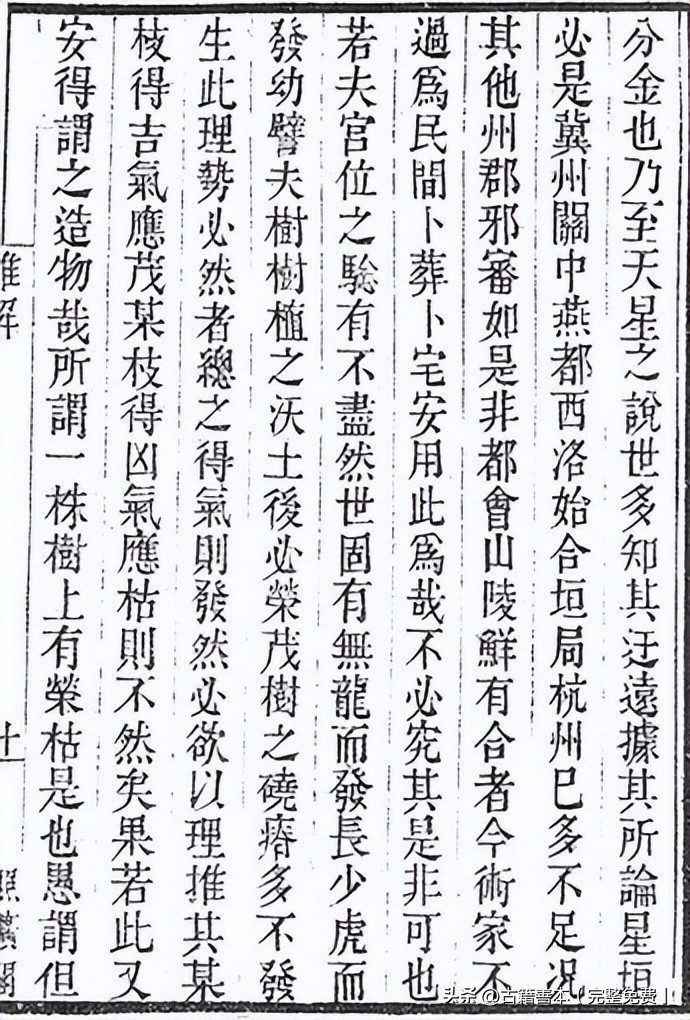 分金也乃至天星之說世多知其迂遠據其所論星垣
必是冀州關中燕都西洛始合垣局杭州巳多不足况
其他州郡邪審如是非都會山陵鮮有合者今術家不
過爲民間卜葬卜宅安用此爲哉不必究其是非可也
若夫宫位之騐有不盡然世固有無龍而發長少虎而
發幼譬夫樹樹植之沃土後必榮茂樹之磽瘠多不發
生此理勢必然者總之得氣則發然必欲以理推其某
枝得吉氣應茂某枝得凶氣應枯則不然矣果若此又
安得謂之造物哉所謂一株樹上有榮枯是也愚謂但
頭条 @古籍善本（完整免费）